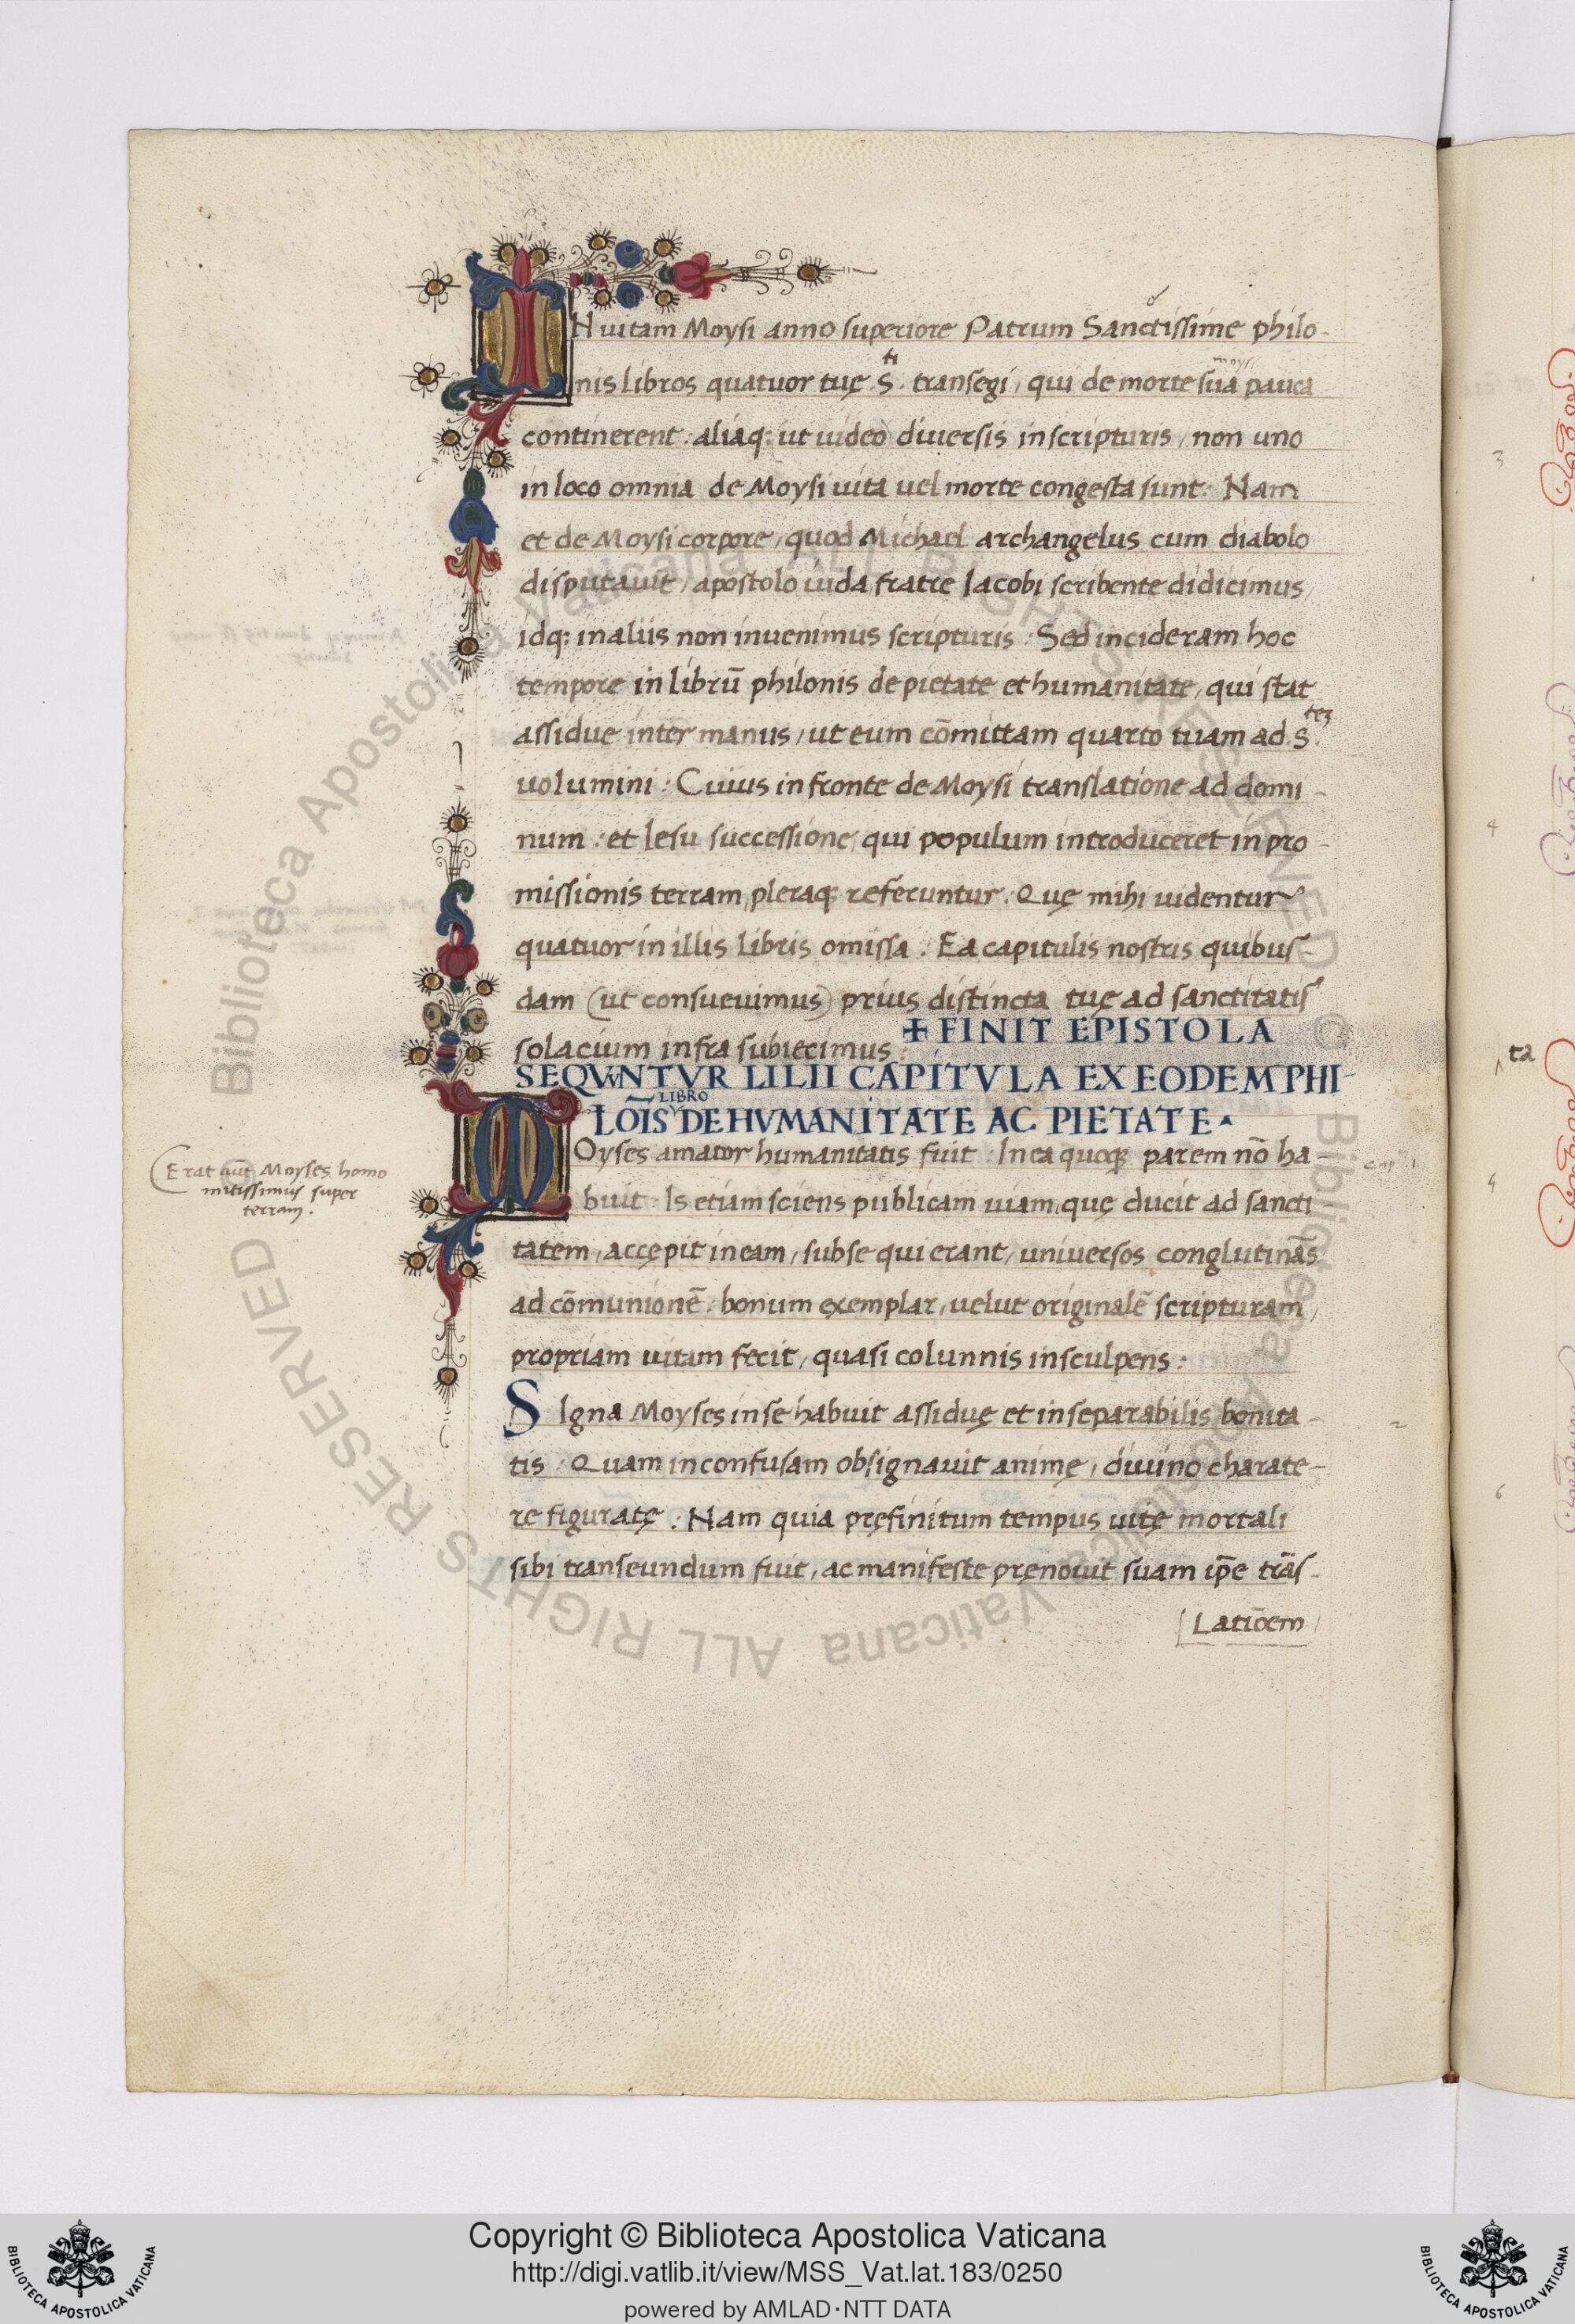 IN uitam Moysi anno superiore Patrum Sanctissime philo-
nis libros quatuor tuę .S.ti transegi, qui de morte sua pauca
moysi
continerent: aliaq: ut uideo diuersis in scripturis, non uno
in loco omnia de Moysi uita uel morte congesta sunt: Nam
et de Moysi corpore, quod Michael archangelus cum diabolo
disputauit, apostolo iuda fratre Iacobi scribente didicimus,
idq: in aliis non inuenimus scripturis: Sed incideram hoc
tempore in librū philonis de pietate et humanitate, qui stat
assidue inter manus, ut eum cōmittam quarto tuam ad .S.teʒ
uolumini: Cuius in fronte de Moysi translatione ad domi-
num: et Iesu successione, qui populum introduceret in pro-
missionis terram, pleraq; referuntur. Quę mihi uidentur
quatuor in illis libris omissa: Ea capitulis nostris quibus-
dam (ut consueuimus) prius distincta tuę ad sanctitatis
solacium infra subiecimus:
+ FINIT EPISTOLA
SEQVVNTVR LIIII CAPITVLA EX EODEM PHI-
LOĪS LIBRO DE HVMANITATE AC PIETATE
MOyses amator humanitatis fuit: In ea quoq; parem nō ha-
Erat aut̄ Moyses homo
mitissimus super
terram.
buit: Is etiam sciens publicam uiam, quę ducit ad sancti-
tatem, accępit in eam, sub se qui erant, universos conglutinās
ad cōmunionē: bonum exemplar, uelut originalē scripturam,
propriam uitam fecit, quasi colunnis insculpens:
SIgna Moyses in se habuit assiduę et inseparabilis bonita-
tis: Quam inconfusam obsignauit animę, diuino charate-
re figuratę: Nam quia pręfinitum tempus uitę mortali
sibi transeundum fuit, ac manifeste pręnouit suam ip̄e trās-
Latiōem
3
4
ta
6
Copyright © Biblioteca Apostolica Vaticana
http://digi.vatlib.it/view/MSS_Vat.lat.183/0250
powered by AMLAD·NTT DATA
BIBLIOTECA APOSTOLICA VATICANA
BIBLIOTECA APOSTOLICA VATICANA
© Biblioteca Apostolica Vaticana ALL RIGHTS RESERVED © Biblioteca Apostolica Vaticana ALL RIGHTS RESERVED